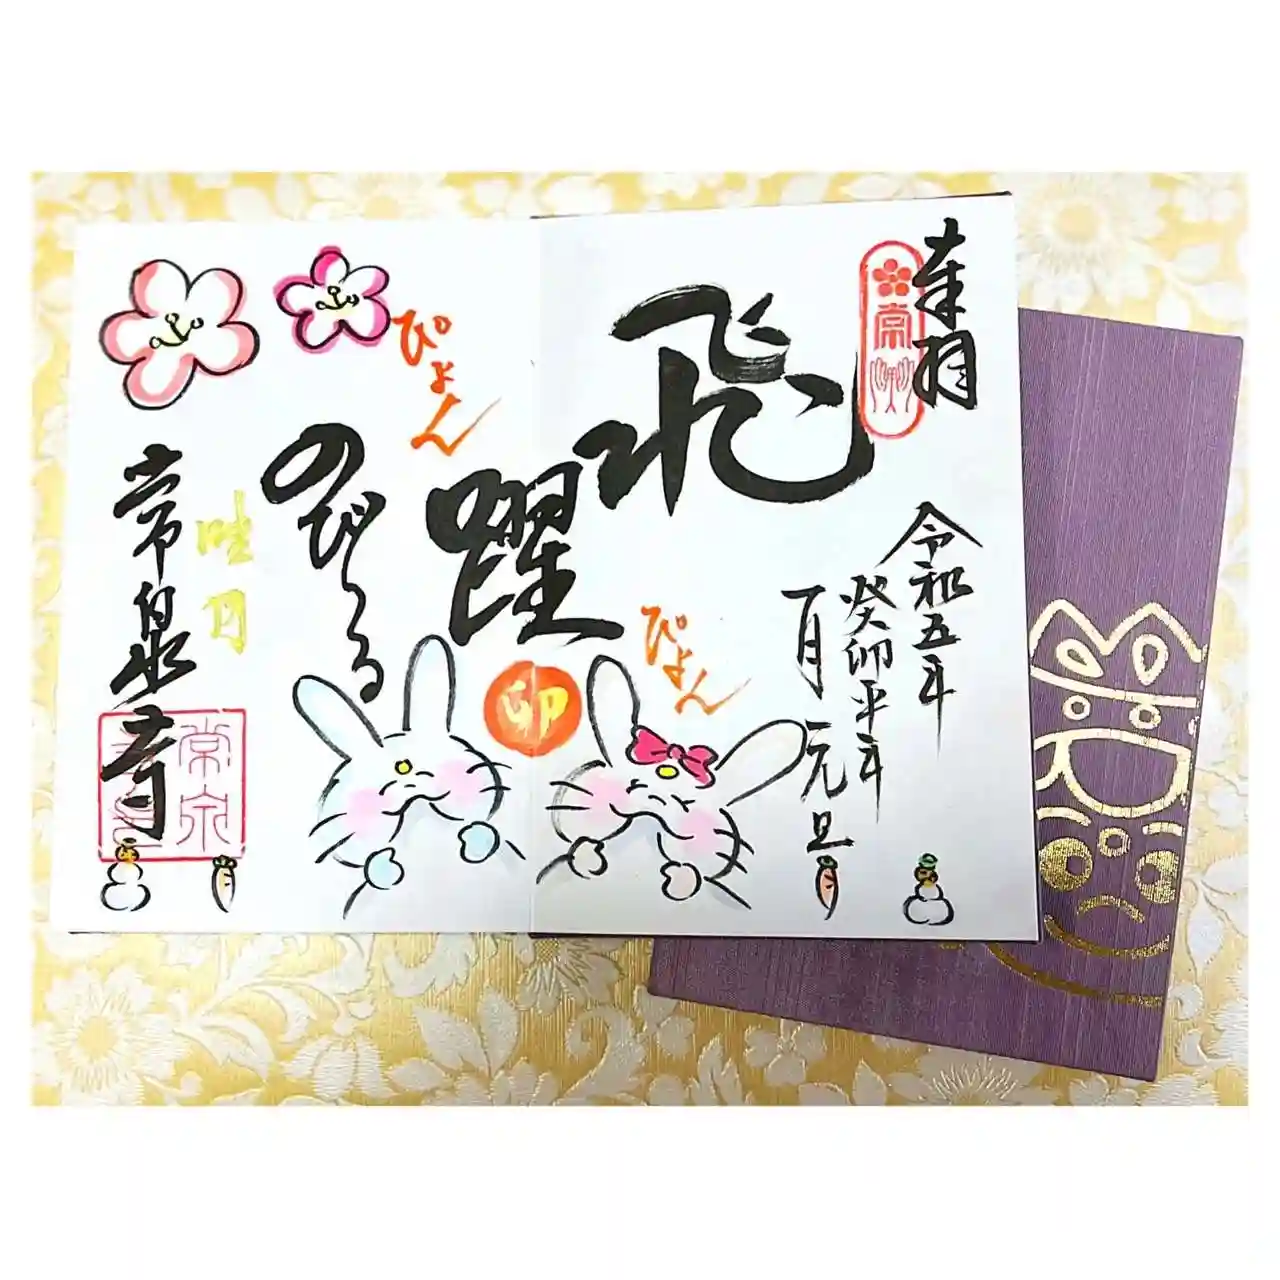 奉拝
令和五年
癸卯年
一月元旦
飛躍
のびる
ぴょん
ぴょん
卯
睦月
常泉寺